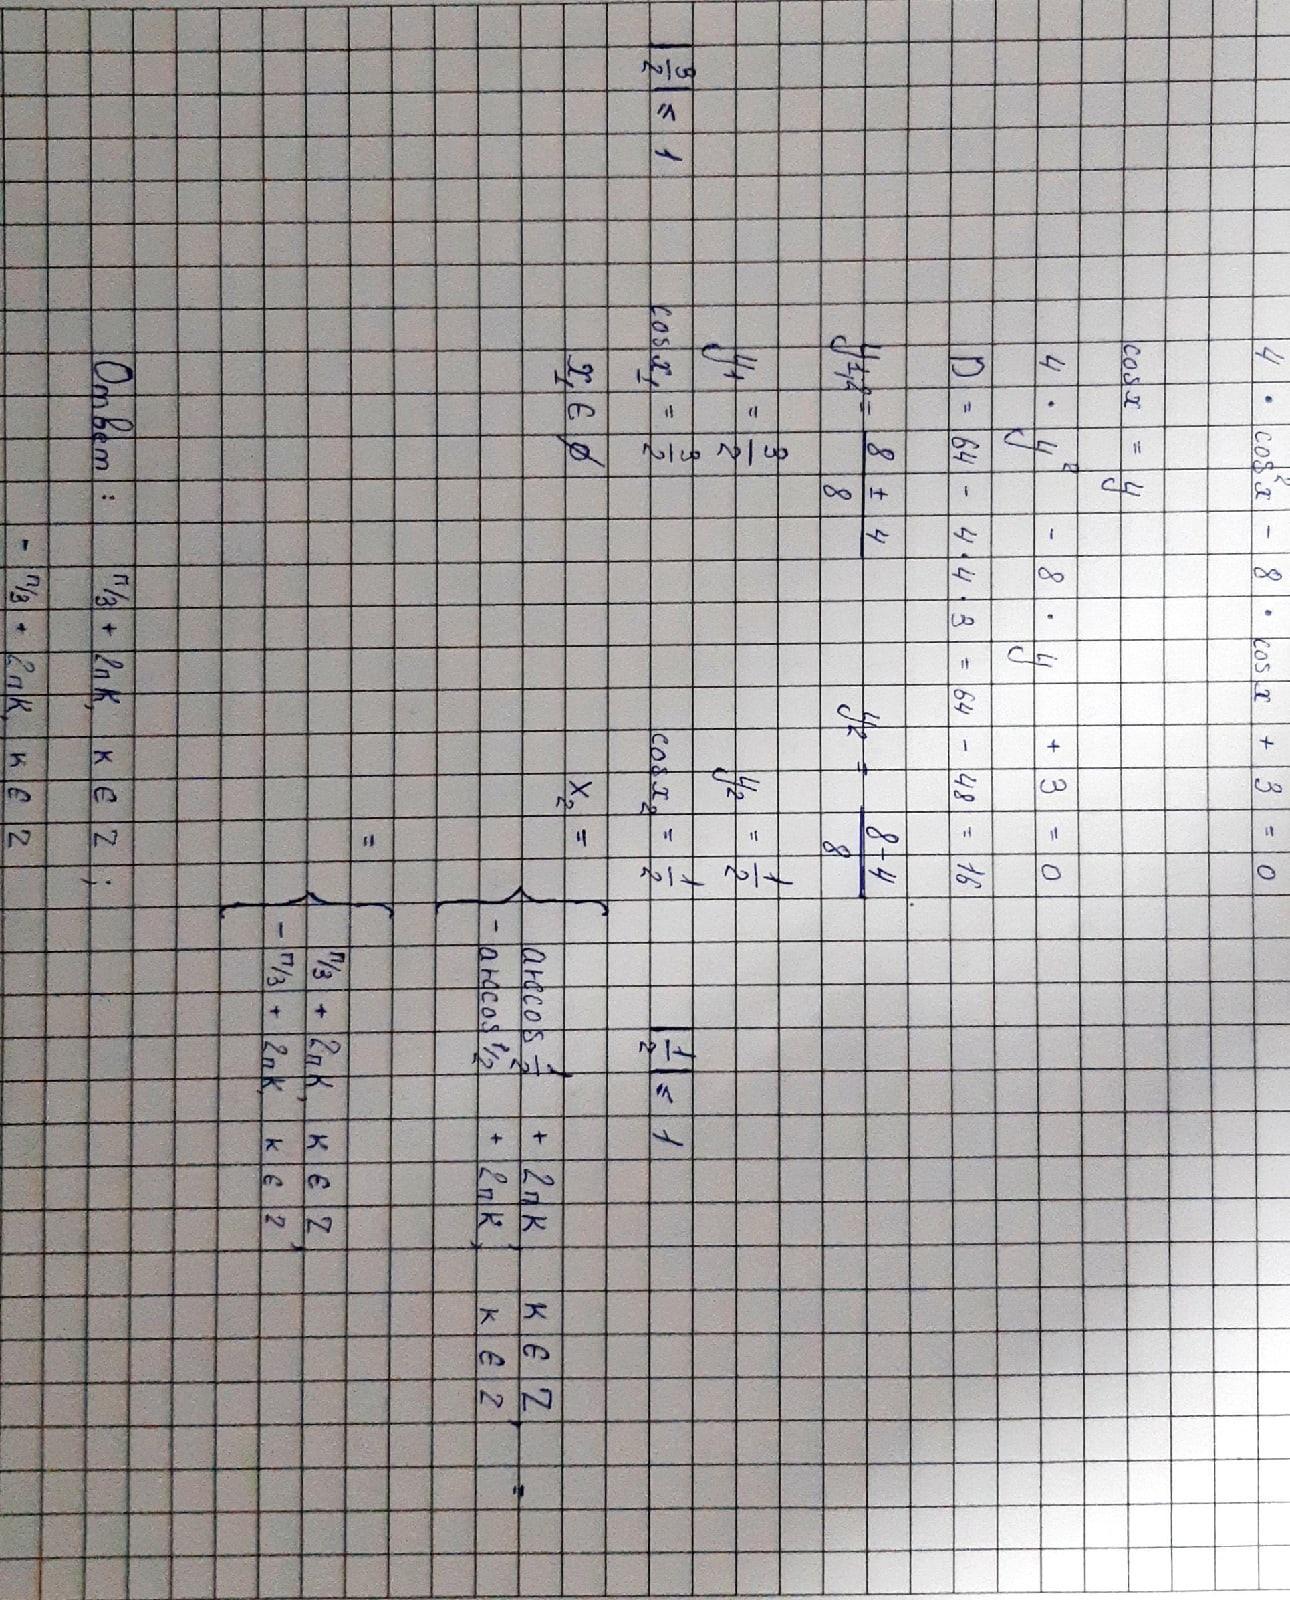 4 · cos²x - 8 · cos x + 3 = 0
cos x = y
4 · y² - 8 · y + 3 = 0
D = 64 - 4·4·3 = 64 - 48 = 16
y₁,₂ = (8 ± 4)/8 y₂ = (8-4)/8
y₁ = 3/2 y₂ = 1/2
|3/2| ≤ 1 cos x₁ = 3/2 cos x₂ = 1/2 |1/2| ≤ 1
x₁ ∈ ∅ x₂ = { arccos 1/2 + 2πк, к ∈ Z,
- arccos 1/2 + 2πк, к ∈ Z =
= { π/3 + 2πк, к ∈ Z,
- π/3 + 2πк, к ∈ Z
Ответ: π/3 + 2πк, к ∈ Z ;
- π/3 + 2πк, к ∈ Z